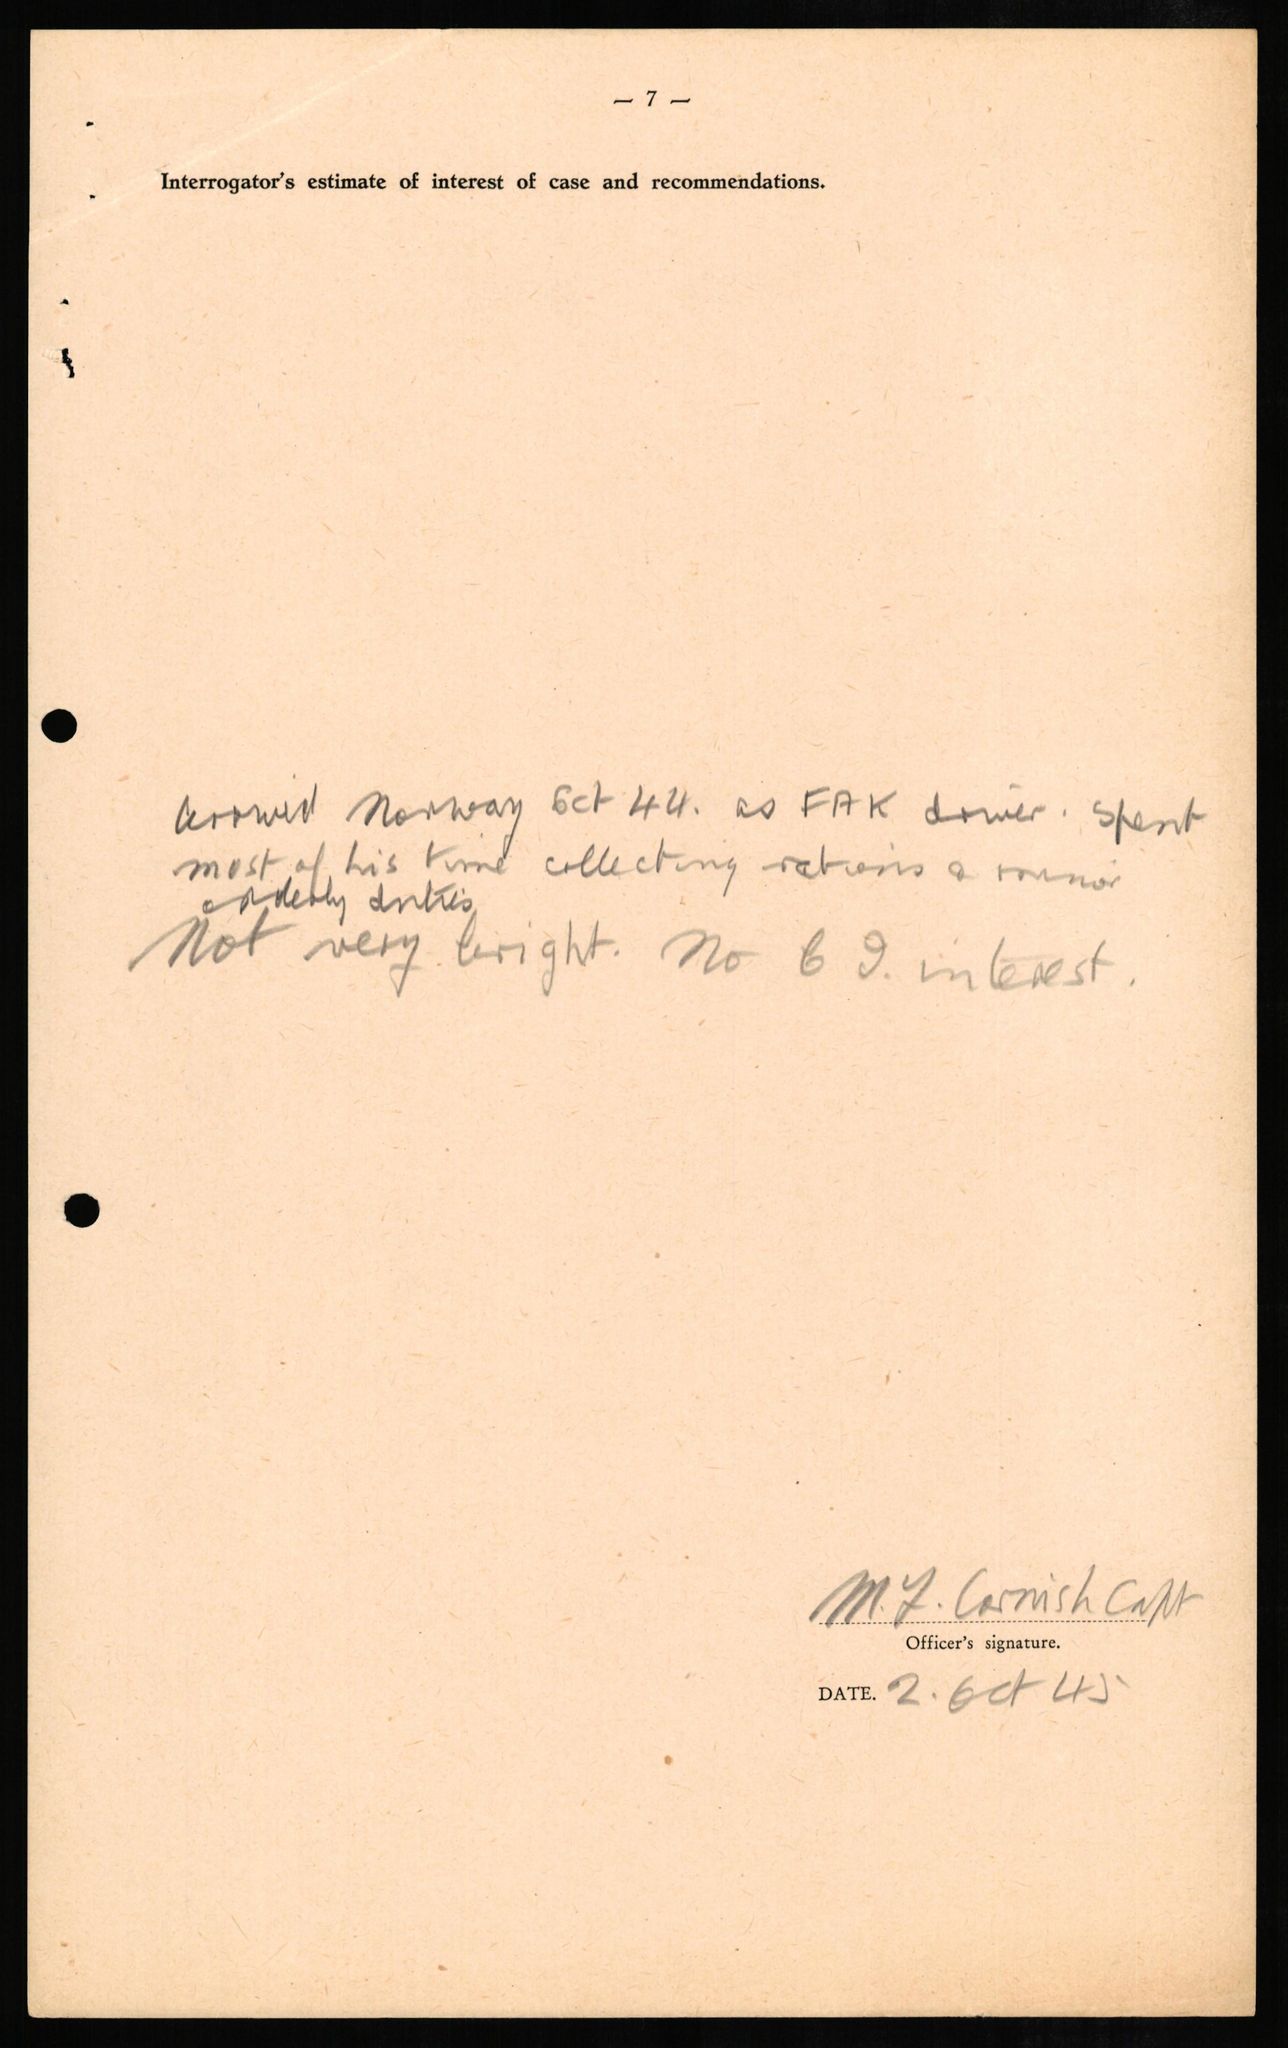 — 7 —
Interrogator's estimate of interest of case and recommendations.
Arrived Norway Oct 44. as FAK driver. Spent
most of his time collecting rations & minor
orderly duties
Not very bright. No C I. interest.
M. F. Cornish Capt
Officer's signature.
DATE. 2. Oct 45